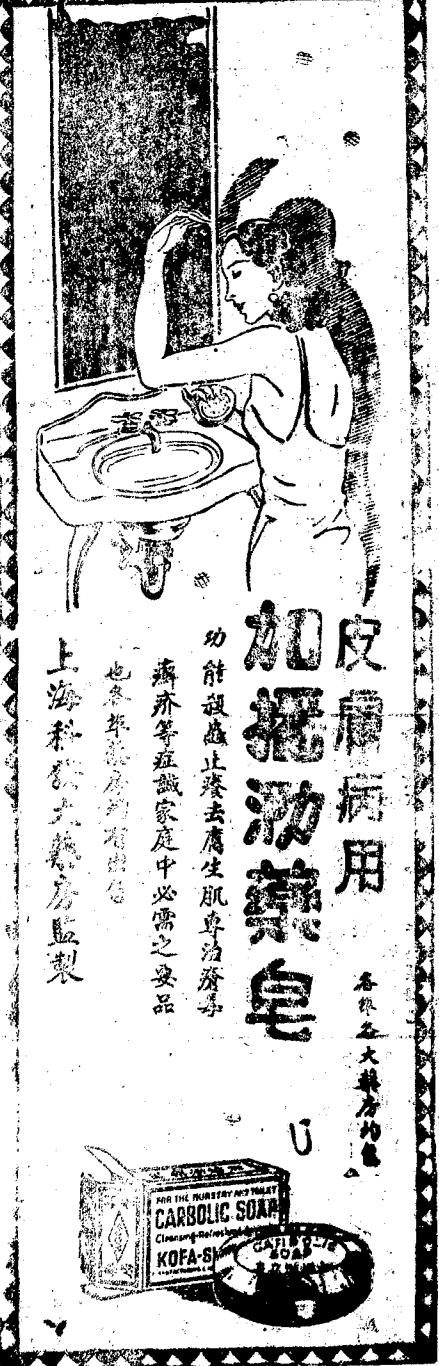 皮膚病用
加抵泐藥皂
功能殺蟲止癢去腐生肌專治
癬疥等症誠家庭中必需之要品
也各埠藥房均有出售
上海科發大藥房監製
各埠各大藥房均售
FOR THE NURSERY AND TOILET
CARBOLIC SOAP
Cleansing-Refreshing
KOFA-SH
CARBOLIC
SOAP